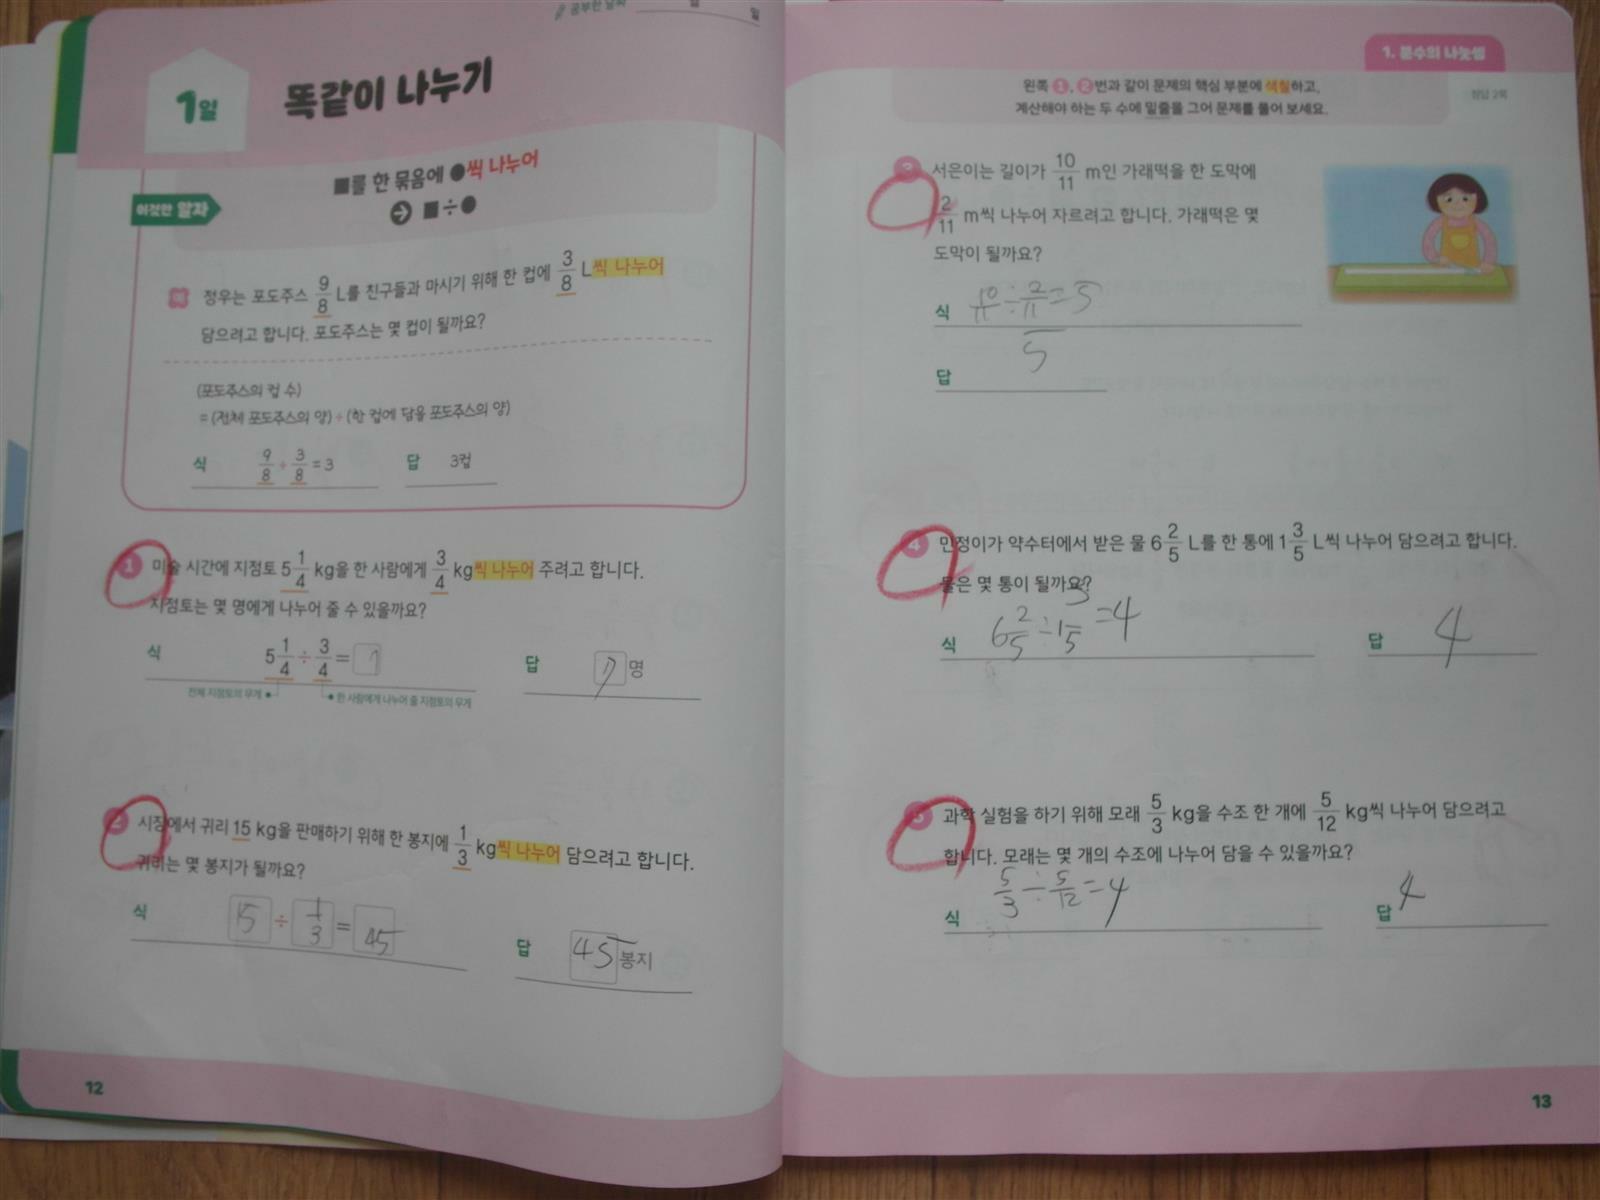 공부한 날짜 월 일
1일
똑같이 나누기
이것만 알자
■를 한 묶음에 ●씩 나누어
➔ ■÷●
예 정우는 포도주스 9/8 L를 친구들과 마시기 위해 한 컵에 3/8 L씩 나누어
담으려고 합니다. 포도주스는 몇 컵이 될까요?
(포도주스의 컵 수)
= (전체 포도주스의 양) ÷ (한 컵에 담을 포도주스의 양)
식 9/8 ÷ 3/8 = 3 답 3컵
1 미술 시간에 지점토 5 1/4 kg을 한 사람에게 3/4 kg씩 나누어 주려고 합니다.
지점토는 몇 명에게 나누어 줄 수 있을까요?
식 5 1/4 ÷ 3/4 = 7 답 7 명
전체 지점토의 무게 한 사람에게 나누어 줄 지점토의 무게
2 시장에서 귀리 15 kg을 판매하기 위해 한 봉지에 1/3 kg씩 나누어 담으려고 합니다.
귀리는 몇 봉지가 될까요?
식 15 ÷ 1/3 = 45 답 45 봉지
12
1. 분수의 나눗셈
왼쪽 1, 2번과 같이 문제의 핵심 부분에 색칠하고,
계산해야 하는 두 수에 밑줄을 그어 문제를 풀어 보세요.
정답 2쪽
3 서은이는 길이가 10/11 m인 가래떡을 한 도막에
2/11 m씩 나누어 자르려고 합니다. 가래떡은 몇
도막이 될까요?
식 10/11 ÷ 2/11 = 5
답 5
4 민정이가 약수터에서 받은 물 6 2/5 L를 한 통에 1 3/5 L씩 나누어 담으려고 합니다.
물은 몇 통이 될까요?
식 6 2/5 ÷ 1 3/5 = 4 답 4
5 과학 실험을 하기 위해 모래 5/3 kg을 수조 한 개에 5/12 kg씩 나누어 담으려고
합니다. 모래는 몇 개의 수조에 나누어 담을 수 있을까요?
식 5/3 ÷ 5/12 = 4 답 4
13